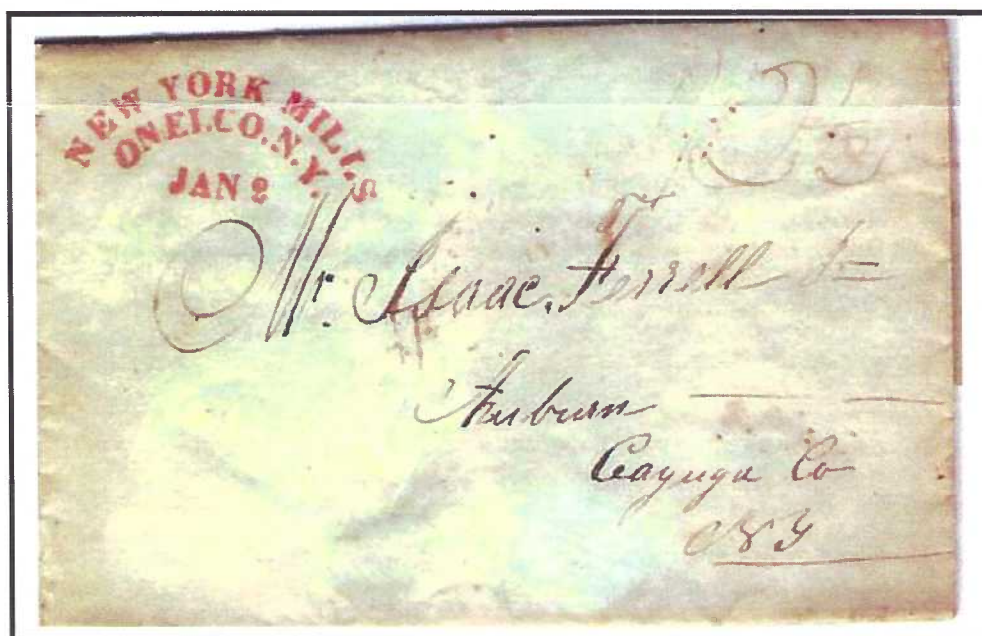 NEW YORK MILLS
ONEI.CO.N.Y.
JAN 2
Mr. Isaac. Ferrell
Auburn
Cayuga Co
NY